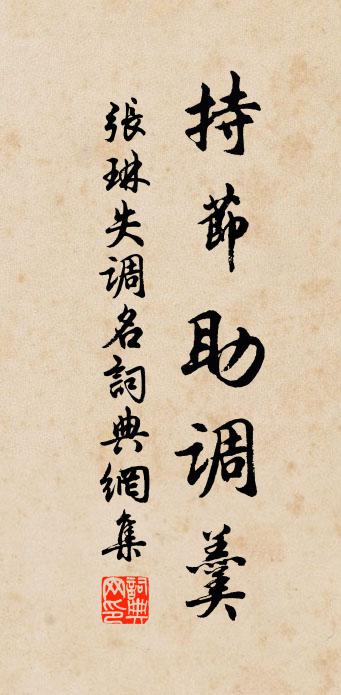 持節助調羹
張琳失調名詞典網集
詞典
网印